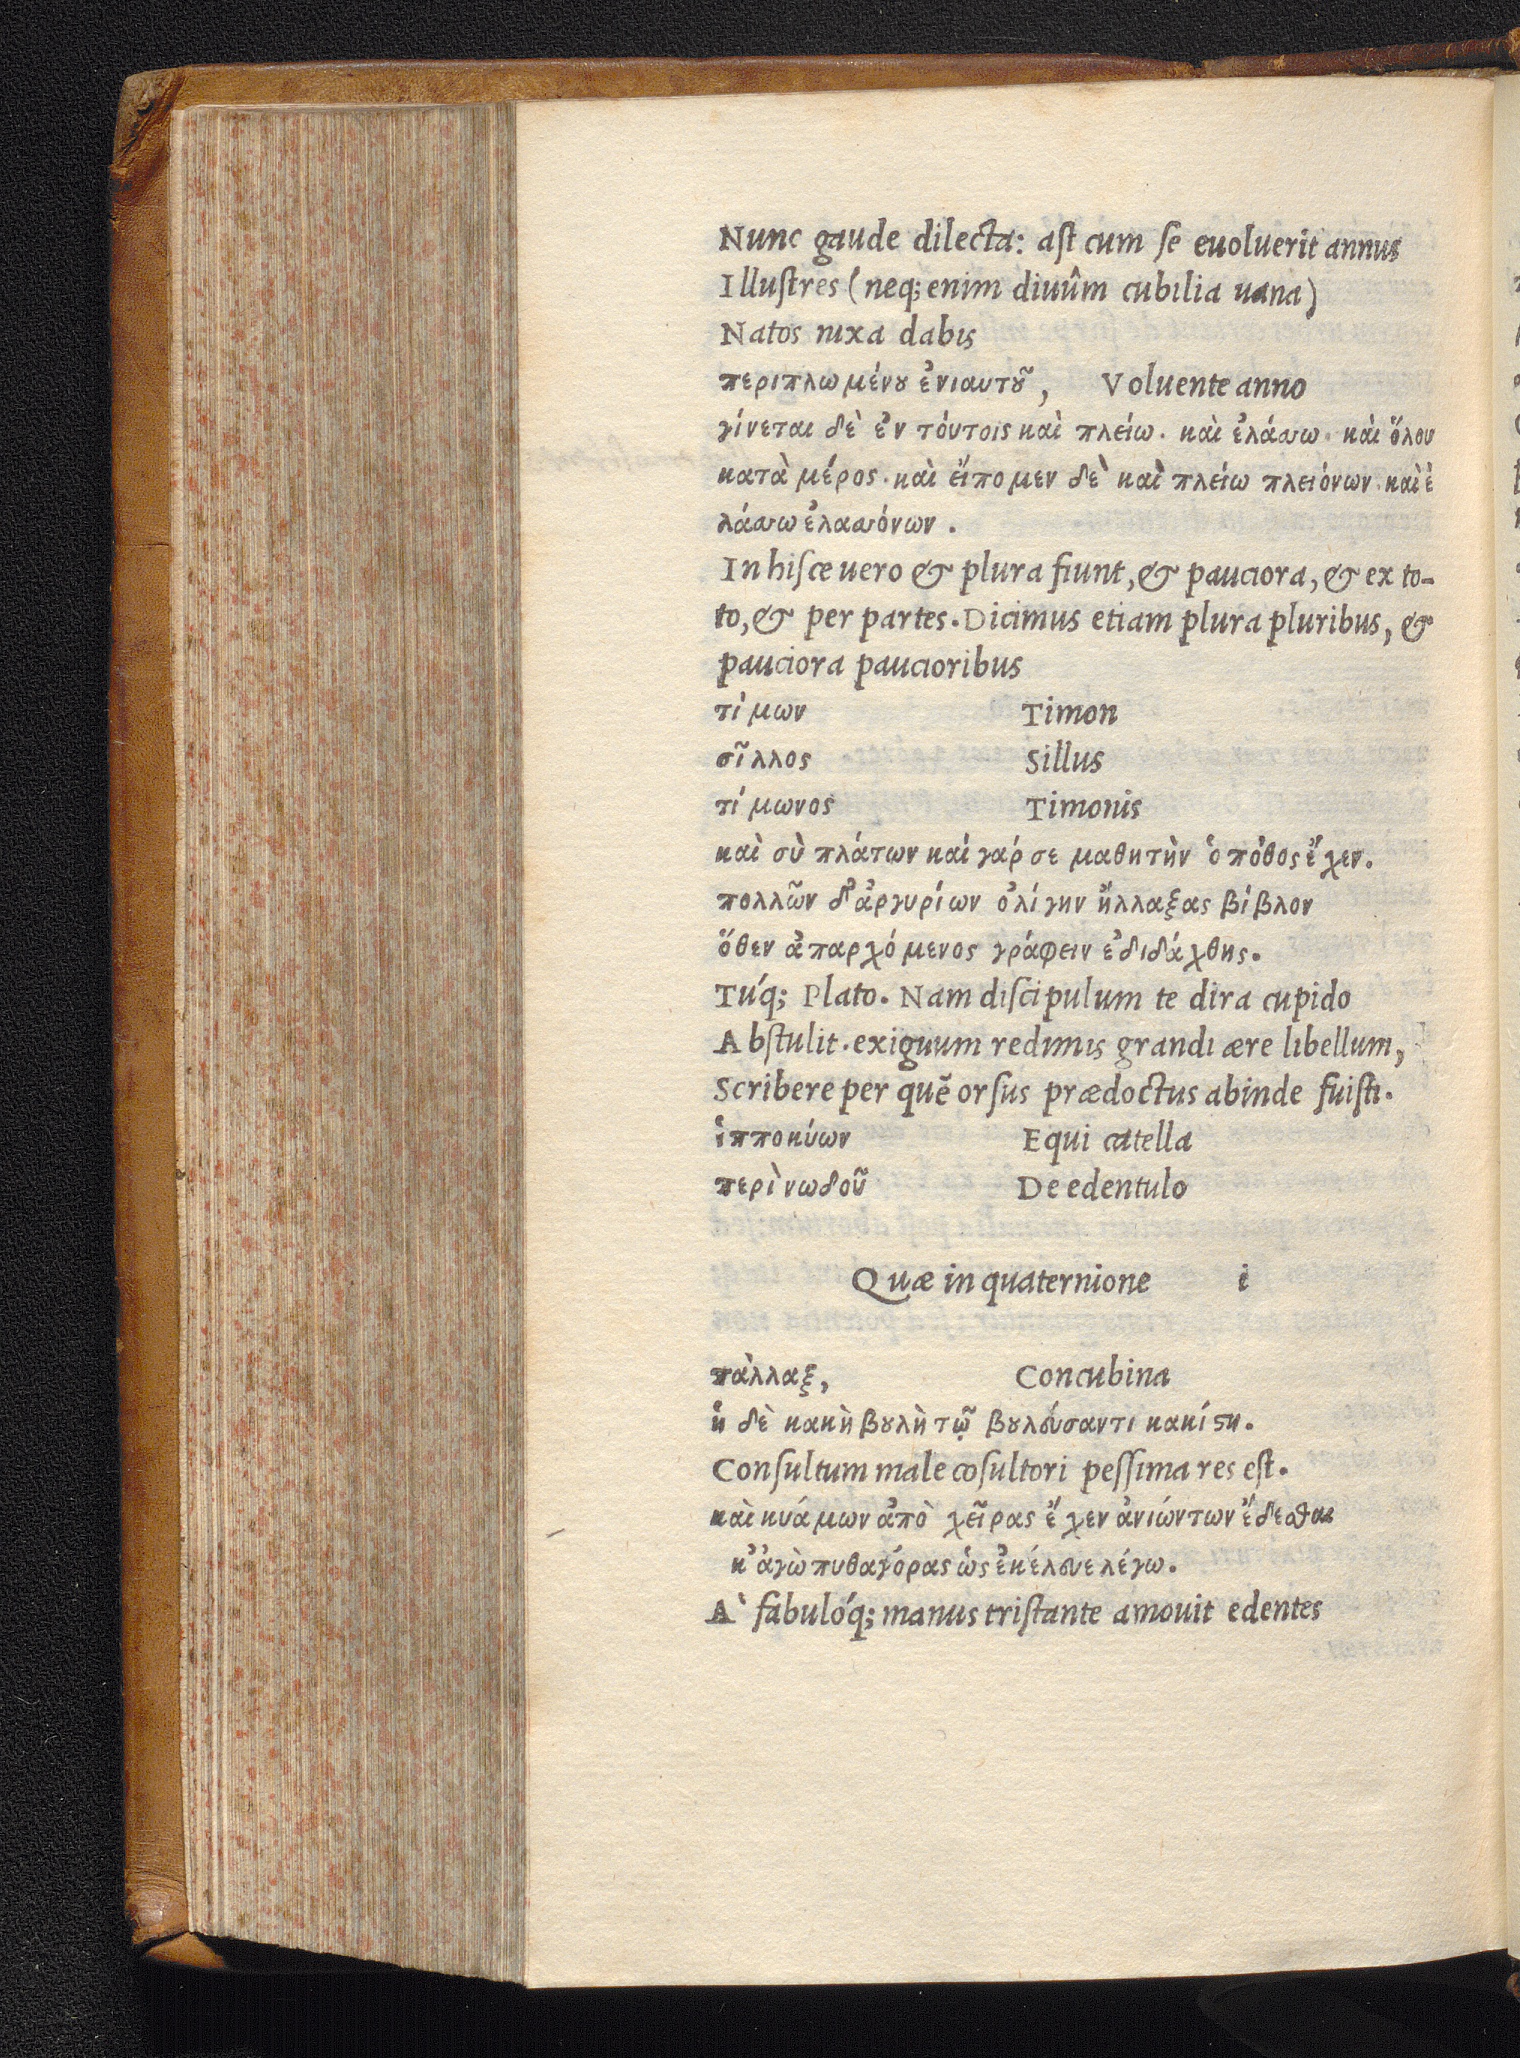 Nunc gaude dilecta: ast cum se euoluerit annus
Illustres (neq; enim diuûm cubilia uana)
Natos nixa dabis
περιπλωμένȣ ἐνιαυτȣ͂, Voluente anno
γίνεται δὲ ἐν τόυτοις καὶ πλείω. καὶ ἐλάττω. κὰι ὅλου
κατὰ μέρος. καὶ εἴπομεν δὲ καὶ πλείω πλειόνων. καὶ ἐ
λάττω ἐλαττόνων.
In hisce uero & plura fiunt, & pauciora, & ex to-
to, & per partes. Dicimus etiam plura pluribus, &
pauciora paucioribus
τίμων Timon
σῖλλος Sillus
τίμωνος Timonis
καὶ σὺ πλάτων καί γαρ σε μαθητὴν ὁ πόθος ἔχεν.
πολλῶν δ᾽ ἀργυρίων ὀλίγην ἤλλαξας βίβλον
ὅθεν ἀπαρχόμενος γράφειν ἐδιδάχθης.
Túq; Plato. Nam discipulum te dira cupido
Abstulit. exiguum redimis grandi ære libellum,
Scribere per quē orsus prædoctus abinde fuisti.
ἱπποκύων Equi catella
περὶ νωδοῦ De edentulo
Quæ in quaternione i
πὰλλαξ, Concubina
ἡ δὲ κακὴ βȣλὴ τῷ βȣλεύσαντι κακίϛη.
Consultum male cosultori pessima res est.
καὶ κυάμων ἀπὸ χεῖρας ἔχεν ἀνιώντων ἔδεσθαι
κ᾽ ἀγὼ πυθαγόρας ὡς ἐκέλευε λέγω.
A` fabulóq; manus tristante amouit edentes